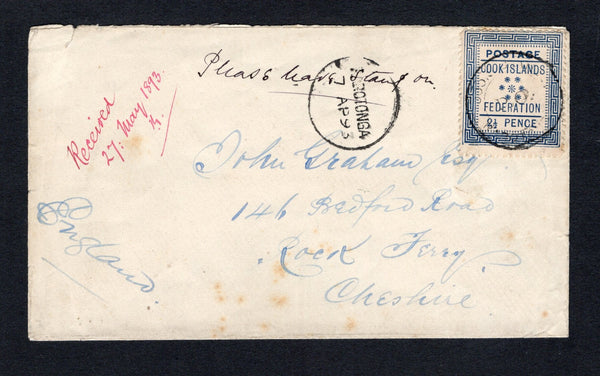 Please leave stamp on.
Received
27. May 1893.
RAROTONGA
7 AP 93
POSTAGE
COOK ISLANDS
FEDERATION
2½ PENCE
John Graham Esq
146 Bedford Road
Rock Ferry
Cheshire
England.